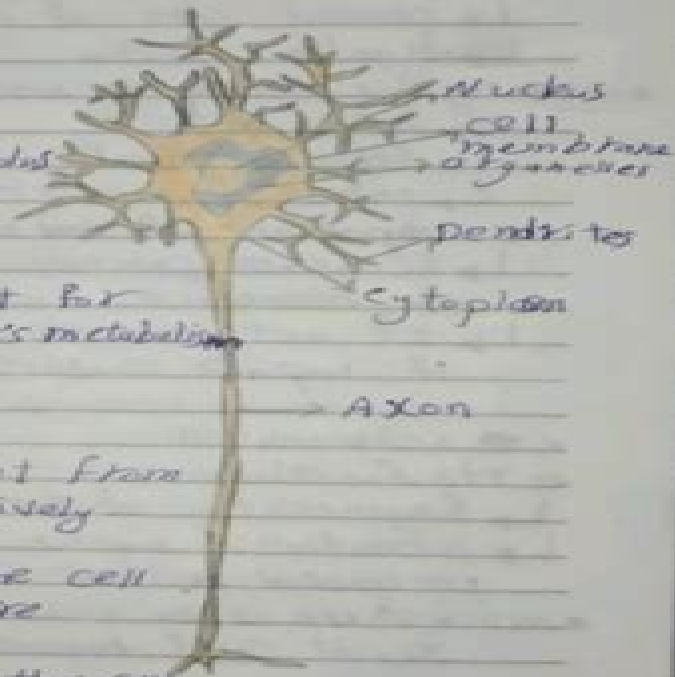 Nucleus
cell
membrane
organelles
Dendrites
Cytoplasm
t for
's metabolism
Axon
t from
ively
e cell
re